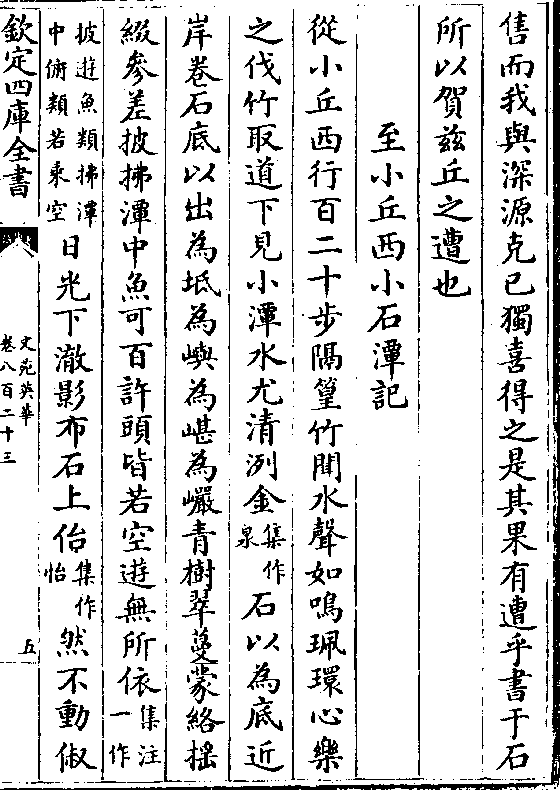 售而我與深源克已獨喜得之是其果有遭乎書于石
所以賀兹丘之遭也
至小丘西小石潭記
從小丘西行百二十步隔篁竹聞水聲如鳴珮環心樂
之伐竹取道下見小潭水尤清洌金集作泉石以為底近
岸卷石底以出為坻為嶼為嵁為巖青樹翠蔓蒙絡揺
綴參差披拂潭中魚可百許頭皆若空遊無所依集注一作
披遊魚類拂潭中俯類若乘空日光下澈影布石上佁集作怡然不動俶
欽定四庫全書
文苑英華
卷八百二十三
五